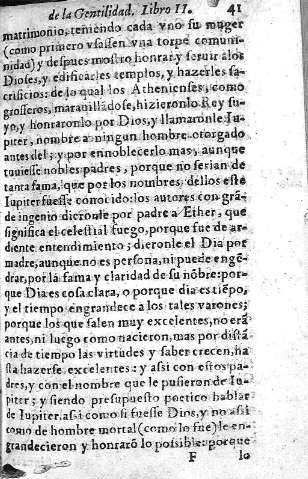 de la Gentilidad. Libro II. 41
matrimonio, teniendo cada vno su muger
(como primero vsassen vna torpe comuni-
nidad) y despues mostro honrar, y seruir a los
Dioses, y edificarles templos, y hazerles sa-
crificios: de lo qual los Athenienses, como
grosseros, marauillãdose, hizieronlo Rey su-
yo, y honraronlo por Dios, y llamaronle Iu-
piter, nombre a ningun hombre otorgado
antes del; y por ennoblecerlo mas, aunque
tuuiesse nobles padres, porque no serian de
tanta fama, que por los nombres dellos este
Iupiter fuesse conocido: los autores con grã-
de ingenio dieronle por padre a Ether, que
significa el celestial fuego, porque fue de ar-
diente entendimiento; dieronle el Dia por
madre, aunque no es persona, ni puede engẽ-
drar, por la fama y claridad de su nõbre: por-
que Dia es cosa clara, o porque dia es tiẽpo,
y el tiempo engrandece a los tales varones;
porque los que salen muy excelentes, no erã
antes, ni luego como nacieron, mas por distã
cia de tiempo las virtudes y saber crecen, ha
sta hazerse excelentes: y assi con estos pa-
dres, y con el nombre que le pusieron de Iu-
piter; y siendo presupuesto poetico hablar
de Iupiter, assi como si fuesse Dios, y no assi
como de hombre mortal (como lo fue) le en-
grandecieron y honrarõ lo possible: porque
F lo